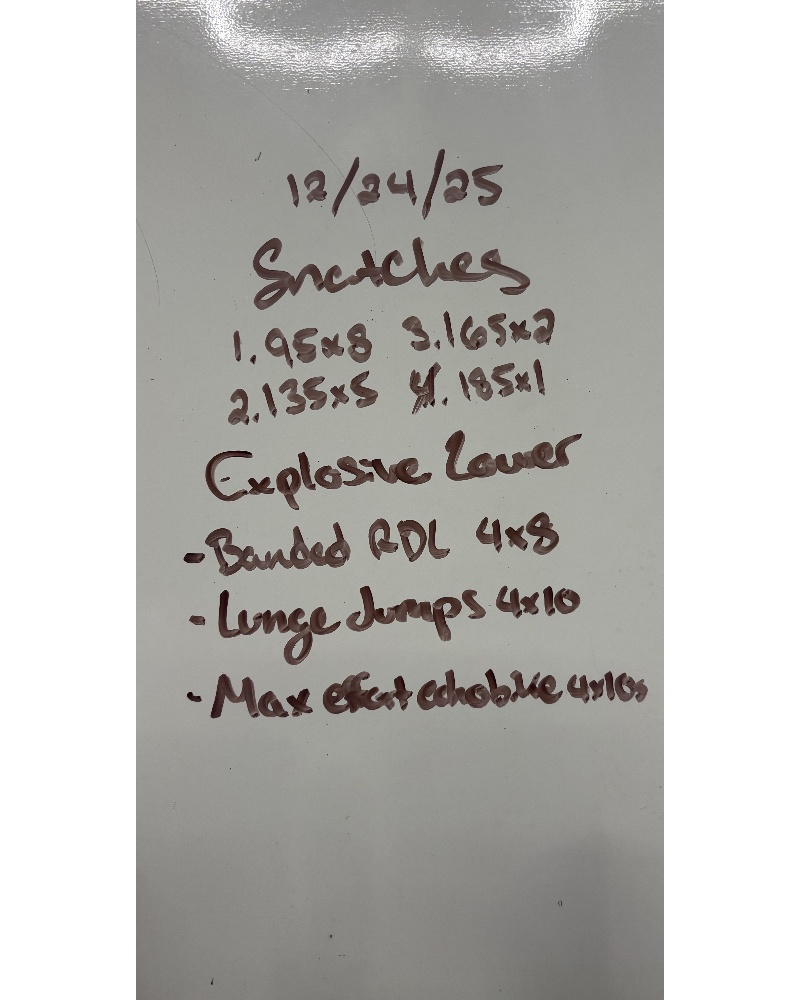 12/24/25
Snatches
1. 95x8 3. 165x2
2. 135x5 4. 185x1
Explosive Lower
- Banded RDL 4x8
- Lunge Jumps 4x10
- Max effort echobike 4x10s